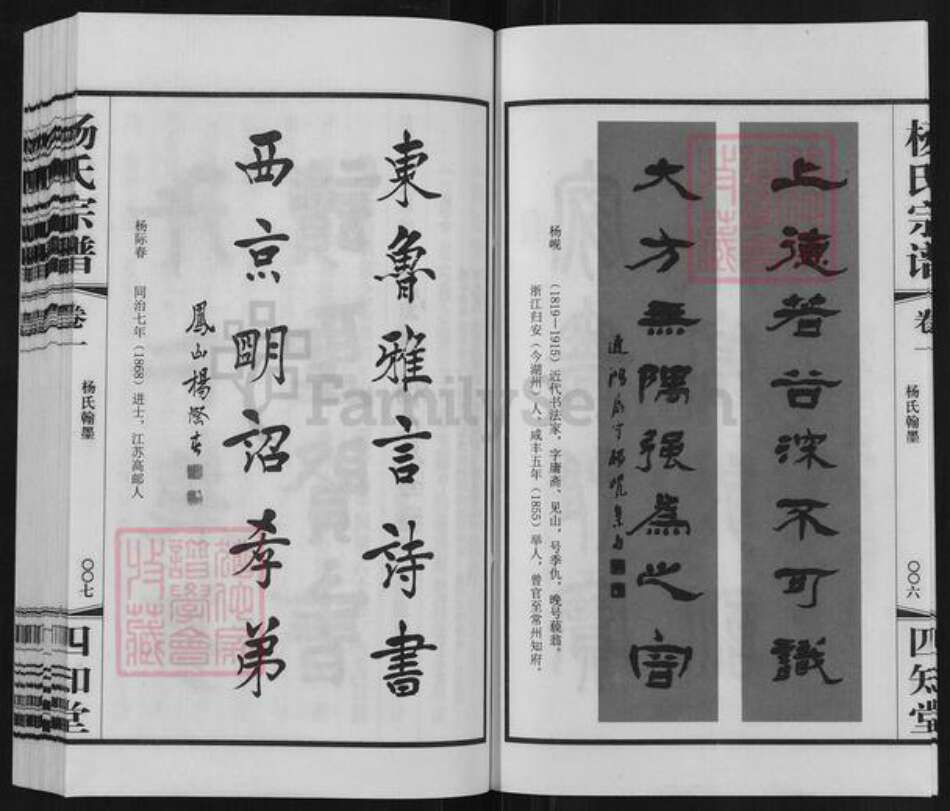 杨氏宗谱
卷一
杨氏翰墨
〇〇六
四知堂
上德若谷深不可識
大方無隅强爲之容
杨岘
(1819—1915)近代书法家,字庸斋、见山,号季仇,晚号藐翁。
浙江归安(今湖州)人,咸丰五年(1855)举人,曾官至常州知府。
東魯雅言詩書
西京明詔孝弟
鳳山楊際春
杨际春
同治七年(1868)进士,江苏高邮人
杨氏宗谱
卷一
杨氏翰墨
〇〇七
四知堂
FamilySearch